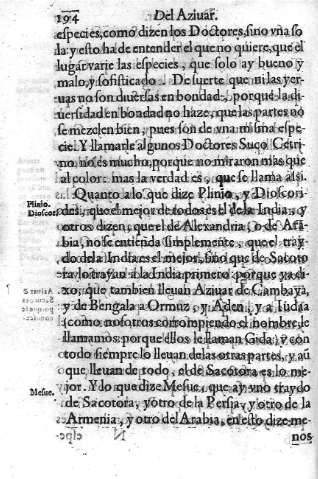 194 Del Aziuar.
especies, como dizen los Doctores, sino vna so
la: y esto ha de entender el que no quiere, que el
lugar varie las especies, que solo ay bueno y
malo, y sofisticado. De suerte que ni las yer-
uas no son diuersas en bondad, porque la di-
uersidad en bondad no haze, que las partes no
se mezclen bien, pues son de vna misma espe-
cie. Y llamarle algunos Doctores Suço Cetri-
no, no es mucho, porque no miraron mas que
al color: mas la verdad es, que se llama assi.
Quanto a lo que dize Plinio, y Dioscori-
Plinio.
Dioscor.
des, que el mejor de todos es el de la India, y
otros dizen, que el de Alexandria, o de Ara-
bia, no se entienda simplemente, que el tray-
do de la India es el mejor, sino que de Sacoto
ra lo trayan a la India primero: porque ya di-
xo, que tambien lleuan Aziuar de Cambaya,
y de Bengala a Ormuz, y Aden, y a Iudaa
(como nosotros corrompiendo el nombre, le
llamamos: porque ellos le llaman Gida) y con
todo siempre lo lleuan de las otras partes, y au
que lleuan de todo, el de Sacotora es lo me-
jor. Y do que dize Mesue, que ay vno traydo
Mesue.
de Sacotora, y otro de la Persia, y otro de la
Armenia, y otro del Arabia, en esto dize me-
nos